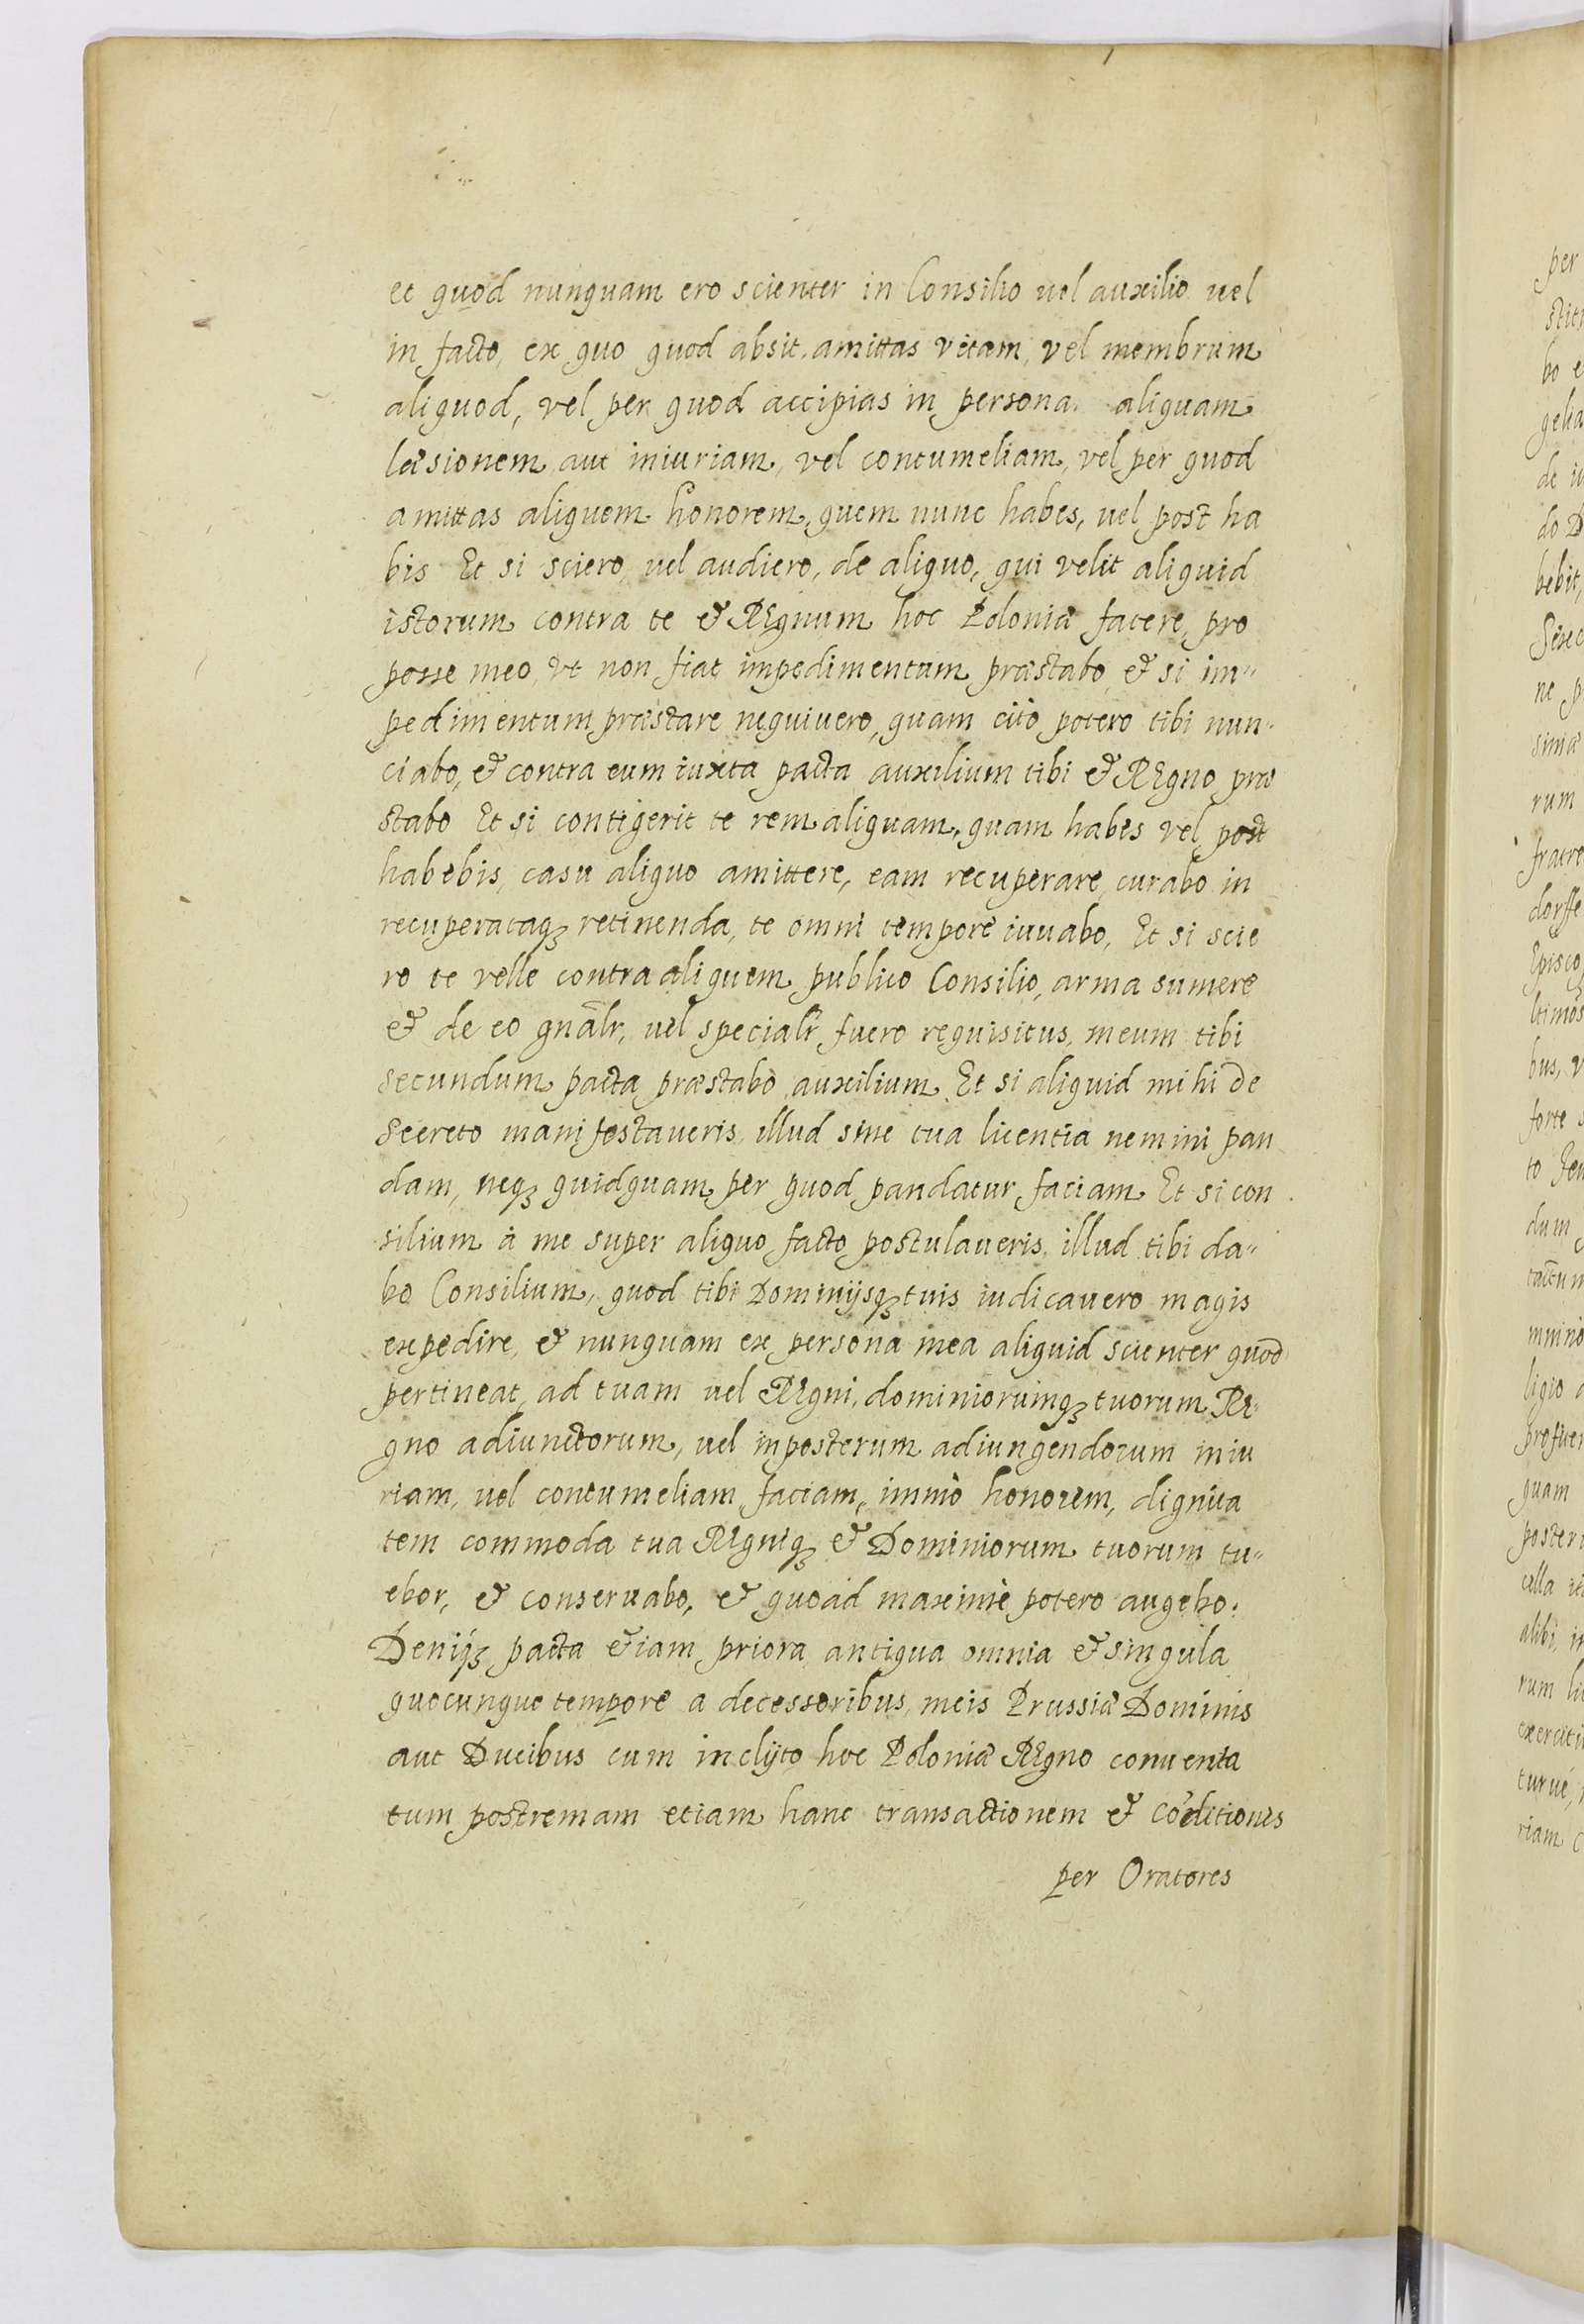 et quod nunquam ero scienter in Consilio vel auxilio vel
in facto, ex quo quod absit, amittas vitam, vel membrum
aliquod, vel per quod accipias in persona aliquam
læsionem aut iniuriam, vel contumeliam, vel per quod
amittas aliquem honorem, quem nunc habes, vel post ha
bis Et si sciero vel audiero, de aliquo, qui velit aliquid
istorum contra te & REgnum hoc Poloniæ facere, pro
posse meo, vt non fiat impedimentum præstabo & si im-
pedimentum præstare nequiuero, quam citò potero tibi nun-
ciabo, & contra eum iuxta pacta auxilium tibi & REgno præ
stabo Et si contigerit te rem aliquam, quam habes vel post
habebis, casu aliquo amittere, eam recuperare curabo in
recuperataqȝ retinenda, te omni tempore iuuabo, Et si scie
ro te velle contra aliquem publico Consilio, arma sumere
& de eo gnãlr, vel specialr fuero requisitus, meum tibi
secundum pacta præstabo auxilium Et si aliquid mihi de
Secreto manifestaueris illud sine tua licentia nemini pan
dam, neqȝ quidquam per quod pandatur faciam Et si con
silium à me super aliquo facto postulaueris, illud tibi da-
bo Consilium, quod tibi Dominijsqȝ tuis iudicauero magis
expedire, & nunquam ex persona mea aliquid scienter quod
pertineat ad tuam vel REgni, dominiorumqȝ tuorum RE-
gno adiunctorum, vel inposterum adiungendorum iniu
riam, vel contumeliam faciam, immò honorem, dignita
tem commoda tua REgniqȝ & Dominiorum tuorum tu-
ebor, & conseruabo, & quoad maximè potero augebo:
Deniqȝ pacta &iam priora antiqua omnia & singula
quocunque tempore a decessoribus meis Prussiæ Dominis
aut Ducibus cum inclÿto hoc Poloniæ REgno conuenta
tum postremam etiam hanc transactionem & cõditiones
per Oratores